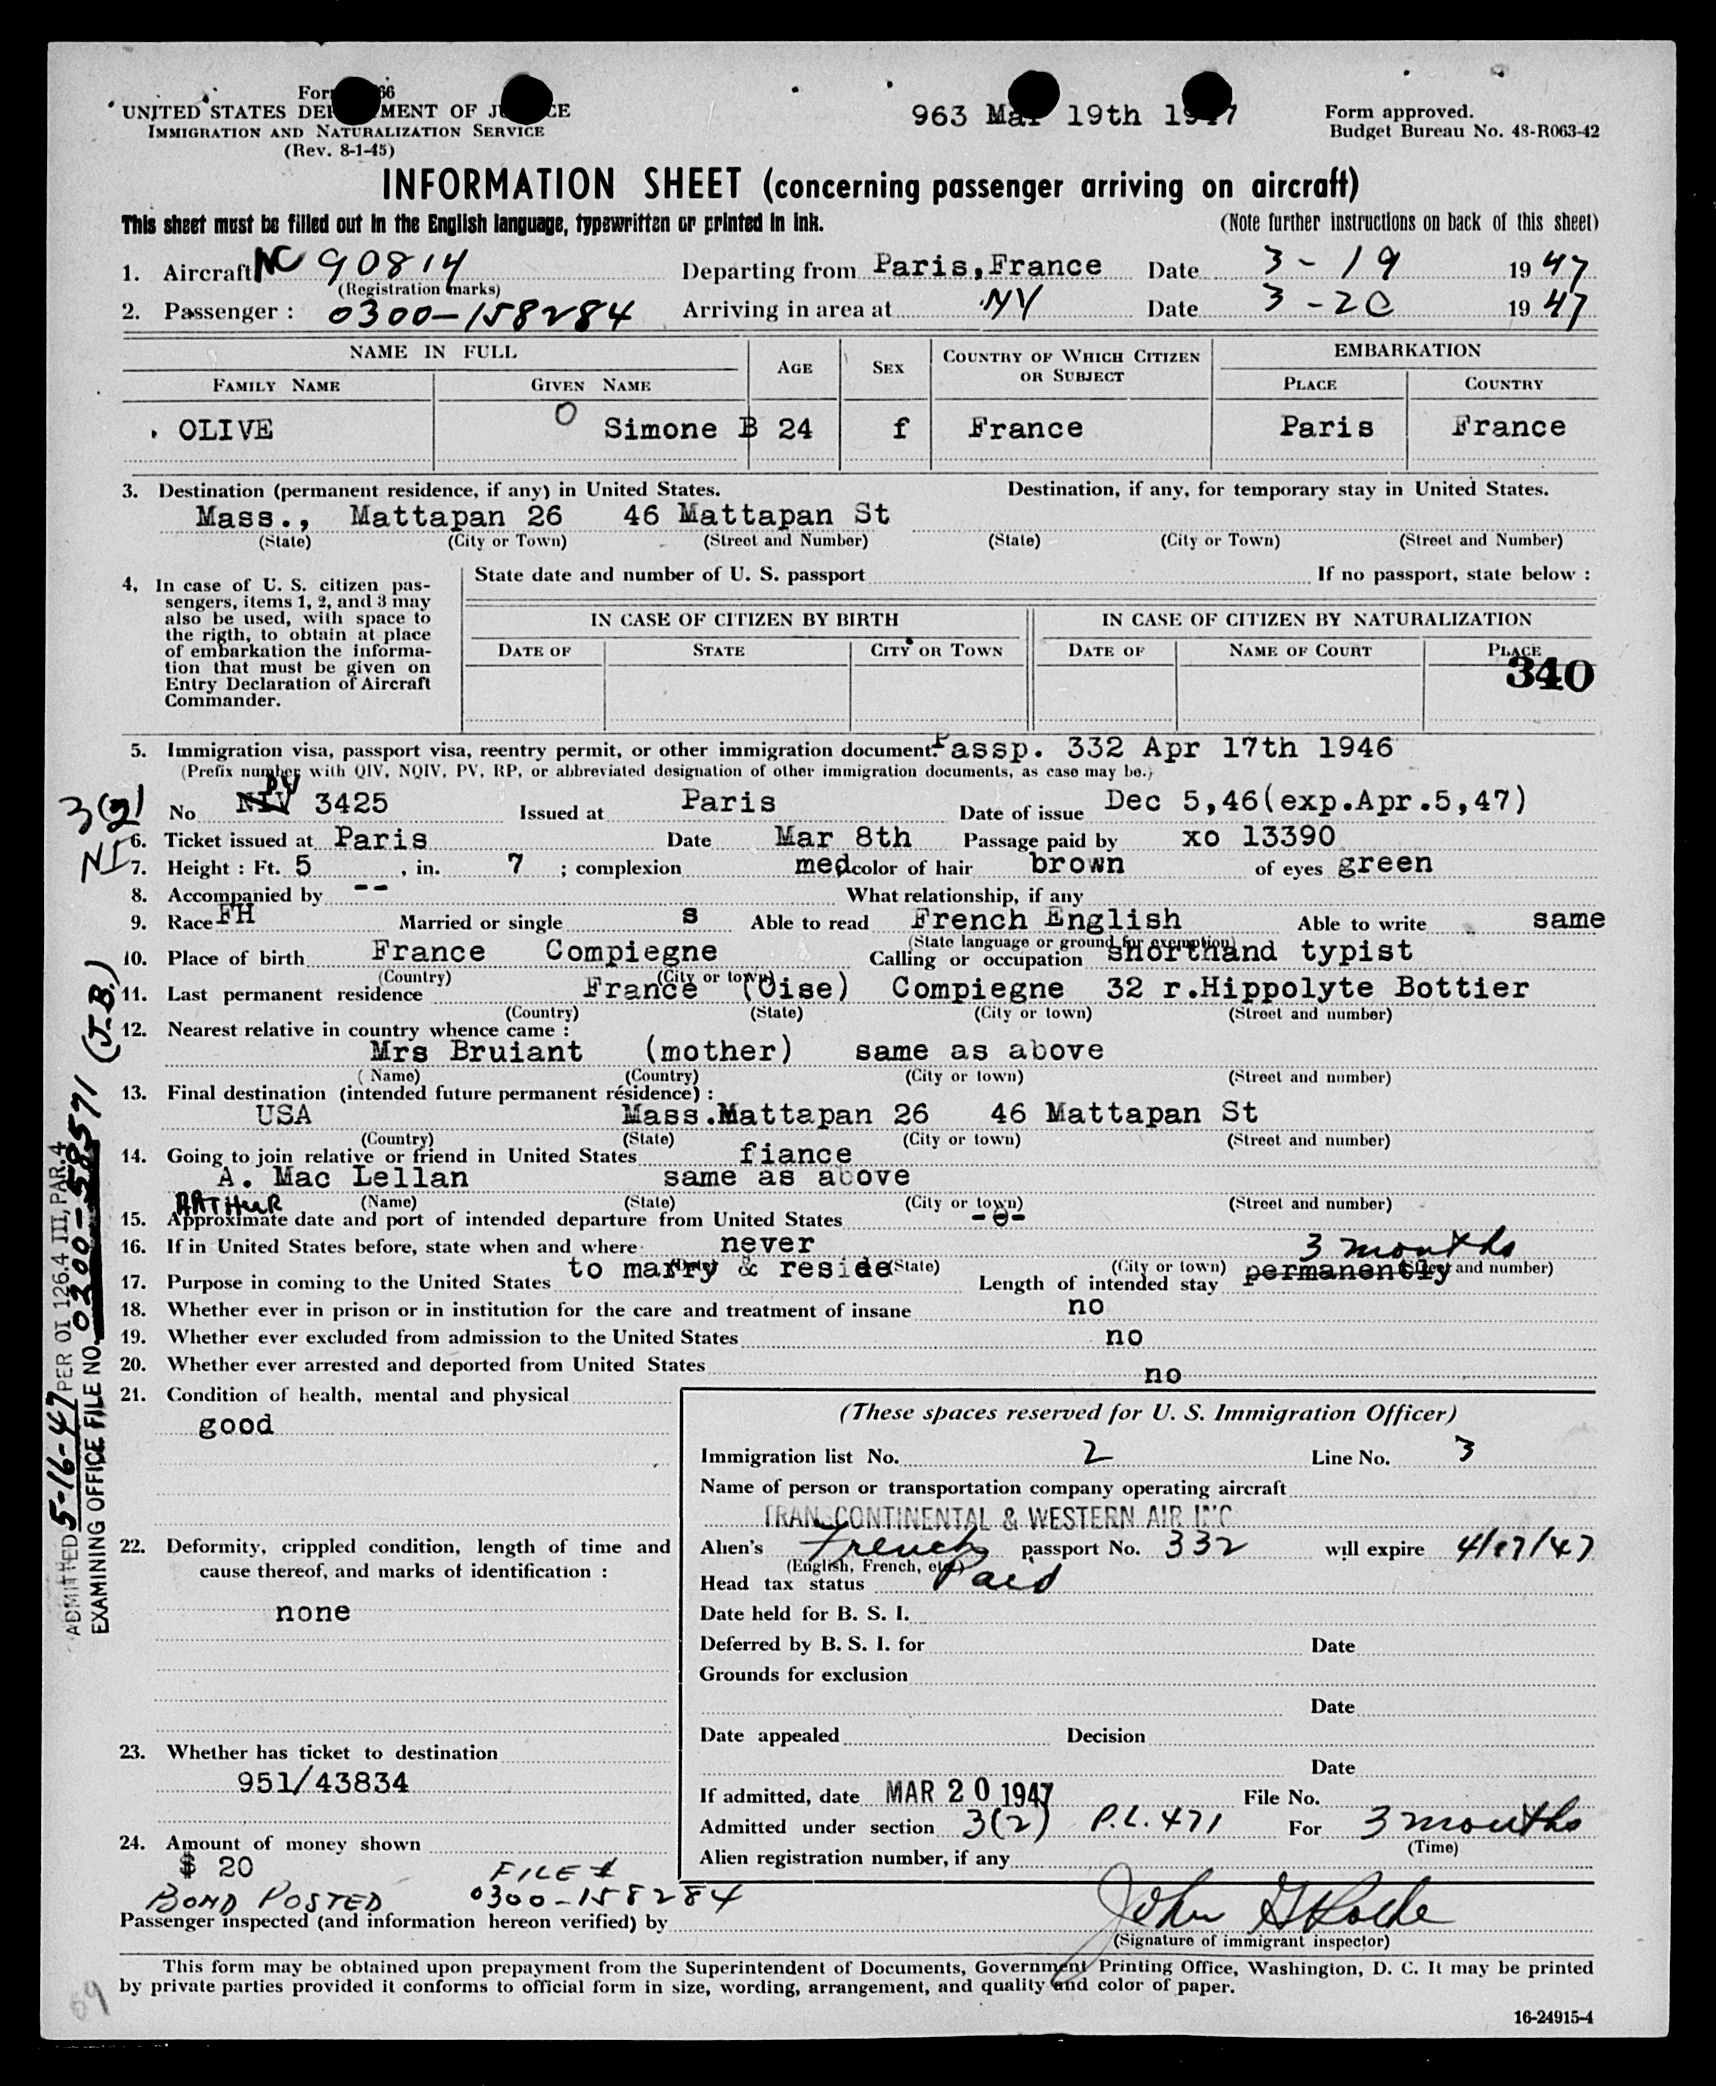 963 Mar 19th 1947
Form approved.
UNITED STATES DEPARTMENT OF JUSTICE
IMMIGRATION AND NATURALIZATION SERVICE
Budget Bureau No. 48-R063-42
(Rev. 8-1-45)
INFORMATION SHEET (concerning passenger arriving on aircraft)
This sheet must be filled out in the English language, typewritten or printed in ink.
(Note further instructions on back of this sheet)
1. Aircraft NC 90814 Departing from Paris,France Date 3-19 1947
(Registration marks)
2. Passenger: 0300-158284 Arriving in area at NY Date 3-20 1947
NAME IN FULL AGE SEX COUNTRY OF WHICH CITIZEN OR SUBJECT EMBARKATION
FAMILY NAME GIVEN NAME PLACE COUNTRY
OLIVE O Simone B 24 f France Paris France
3. Destination (permanent residence, if any) in United States. Destination, if any, for temporary stay in United States.
Mass., Mattapan 26 46 Mattapan St
(State) (City or Town) (Street and Number) (State) (City or Town) (Street and Number)
4. In case of U. S. citizen pas-
sengers, items 1, 2, and 3 may
also be used, with space to
the rigth, to obtain at place
of embarkation the informa-
tion that must be given on
Entry Declaration of Aircraft
Commander.
State date and number of U. S. passport If no passport, state below :
IN CASE OF CITIZEN BY BIRTH IN CASE OF CITIZEN BY NATURALIZATION
DATE OF STATE CITY OR TOWN DATE OF NAME OF COURT PLACE
340
5. Immigration visa, passport visa, reentry permit, or other immigration document Passp. 332 Apr 17th 1946
(Prefix number with QIV, NQIV, PV, RP, or abbreviated designation of other immigration documents, as case may be.)
3(2) PV
No NIV 3425 Issued at Paris Date of issue Dec 5,46(exp.Apr.5,47)
6. Ticket issued at Paris Date Mar 8th Passage paid by xo 13390
NI
7. Height : Ft. 5 , in. 7 ; complexion med color of hair brown of eyes green
8. Accompanied by -- What relationship, if any
9. Race FH Married or single s Able to read French English Able to write same
(State language or ground for exemption)
10. Place of birth France Compiegne Calling or occupation shorthand typist
(Country) (City or town)
11. Last permanent residence France (Oise) Compiegne 32 r.Hippolyte Bottier
(Country) (State) (City or town) (Street and number)
12. Nearest relative in country whence came :
Mrs Bruiant (mother) same as above
(Name) (Country) (City or town) (Street and number)
13. Final destination (intended future permanent résidence) :
USA Mass.Mattapan 26 46 Mattapan St
(Country) (State) (City or town) (Street and number)
14. Going to join relative or friend in United States fiance
A. Mac Lellan same as above
ARTHUR (Name) (State) (City or town) (Street and number)
15. Approximate date and port of intended departure from United States -o-
16. If in United States before, state when and where never
3 months
(State) (City or town) (Street and number)
17. Purpose in coming to the United States to marry & reside Length of intended stay permanently
18. Whether ever in prison or in institution for the care and treatment of insane no
19. Whether ever excluded from admission to the United States no
20. Whether ever arrested and deported from United States no
21. Condition of health, mental and physical
good
22. Deformity, crippled condition, length of time and
cause thereof, and marks of identification :
none
23. Whether has ticket to destination
951/43834
24. Amount of money shown
$ 20
BOND POSTED
FILE #
0300-158284
(These spaces reserved for U. S. Immigration Officer)
Immigration list No. 2 Line No. 3
Name of person or transportation company operating aircraft
TRANSCONTINENTAL & WESTERN AIR INC
Alien's French passport No. 332 will expire 4/17/47
(English, French, etc.)
Head tax status Paid
Date held for B. S. I.
Deferred by B. S. I. for Date
Grounds for exclusion
Date
Date appealed Decision
Date
If admitted, date MAR 20 1947 File No.
Admitted under section 3(2) P.L. 471 For 3 months
(Time)
Alien registration number, if any
Passenger inspected (and information hereon verified) by
(Signature of immigrant inspector)
This form may be obtained upon prepayment from the Superintendent of Documents, Government Printing Office, Washington, D. C. It may be printed
by private parties provided it conforms to official form in size, wording, arrangement, and quality and color of paper.
69
16-24915-4
ADMITTED 5-16-47 PER OI 126.4 III, PAR. 4
EXAMINING OFFICE FILE NO. 0300-58571 (J.B.)